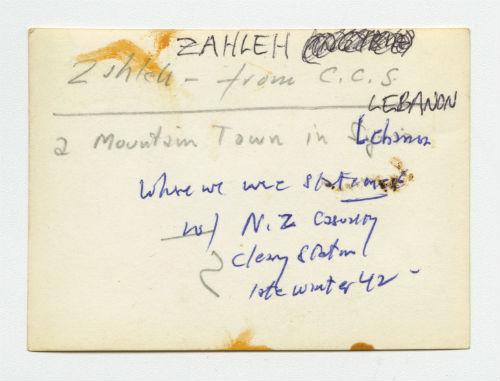 ZAHLEH
Zahleh - from C.C.S.
LEBANON
a Mountain Town in Lebanon
where we were stationed
w/ N.Z. Casualty
Clearing Station
late winter 42 -